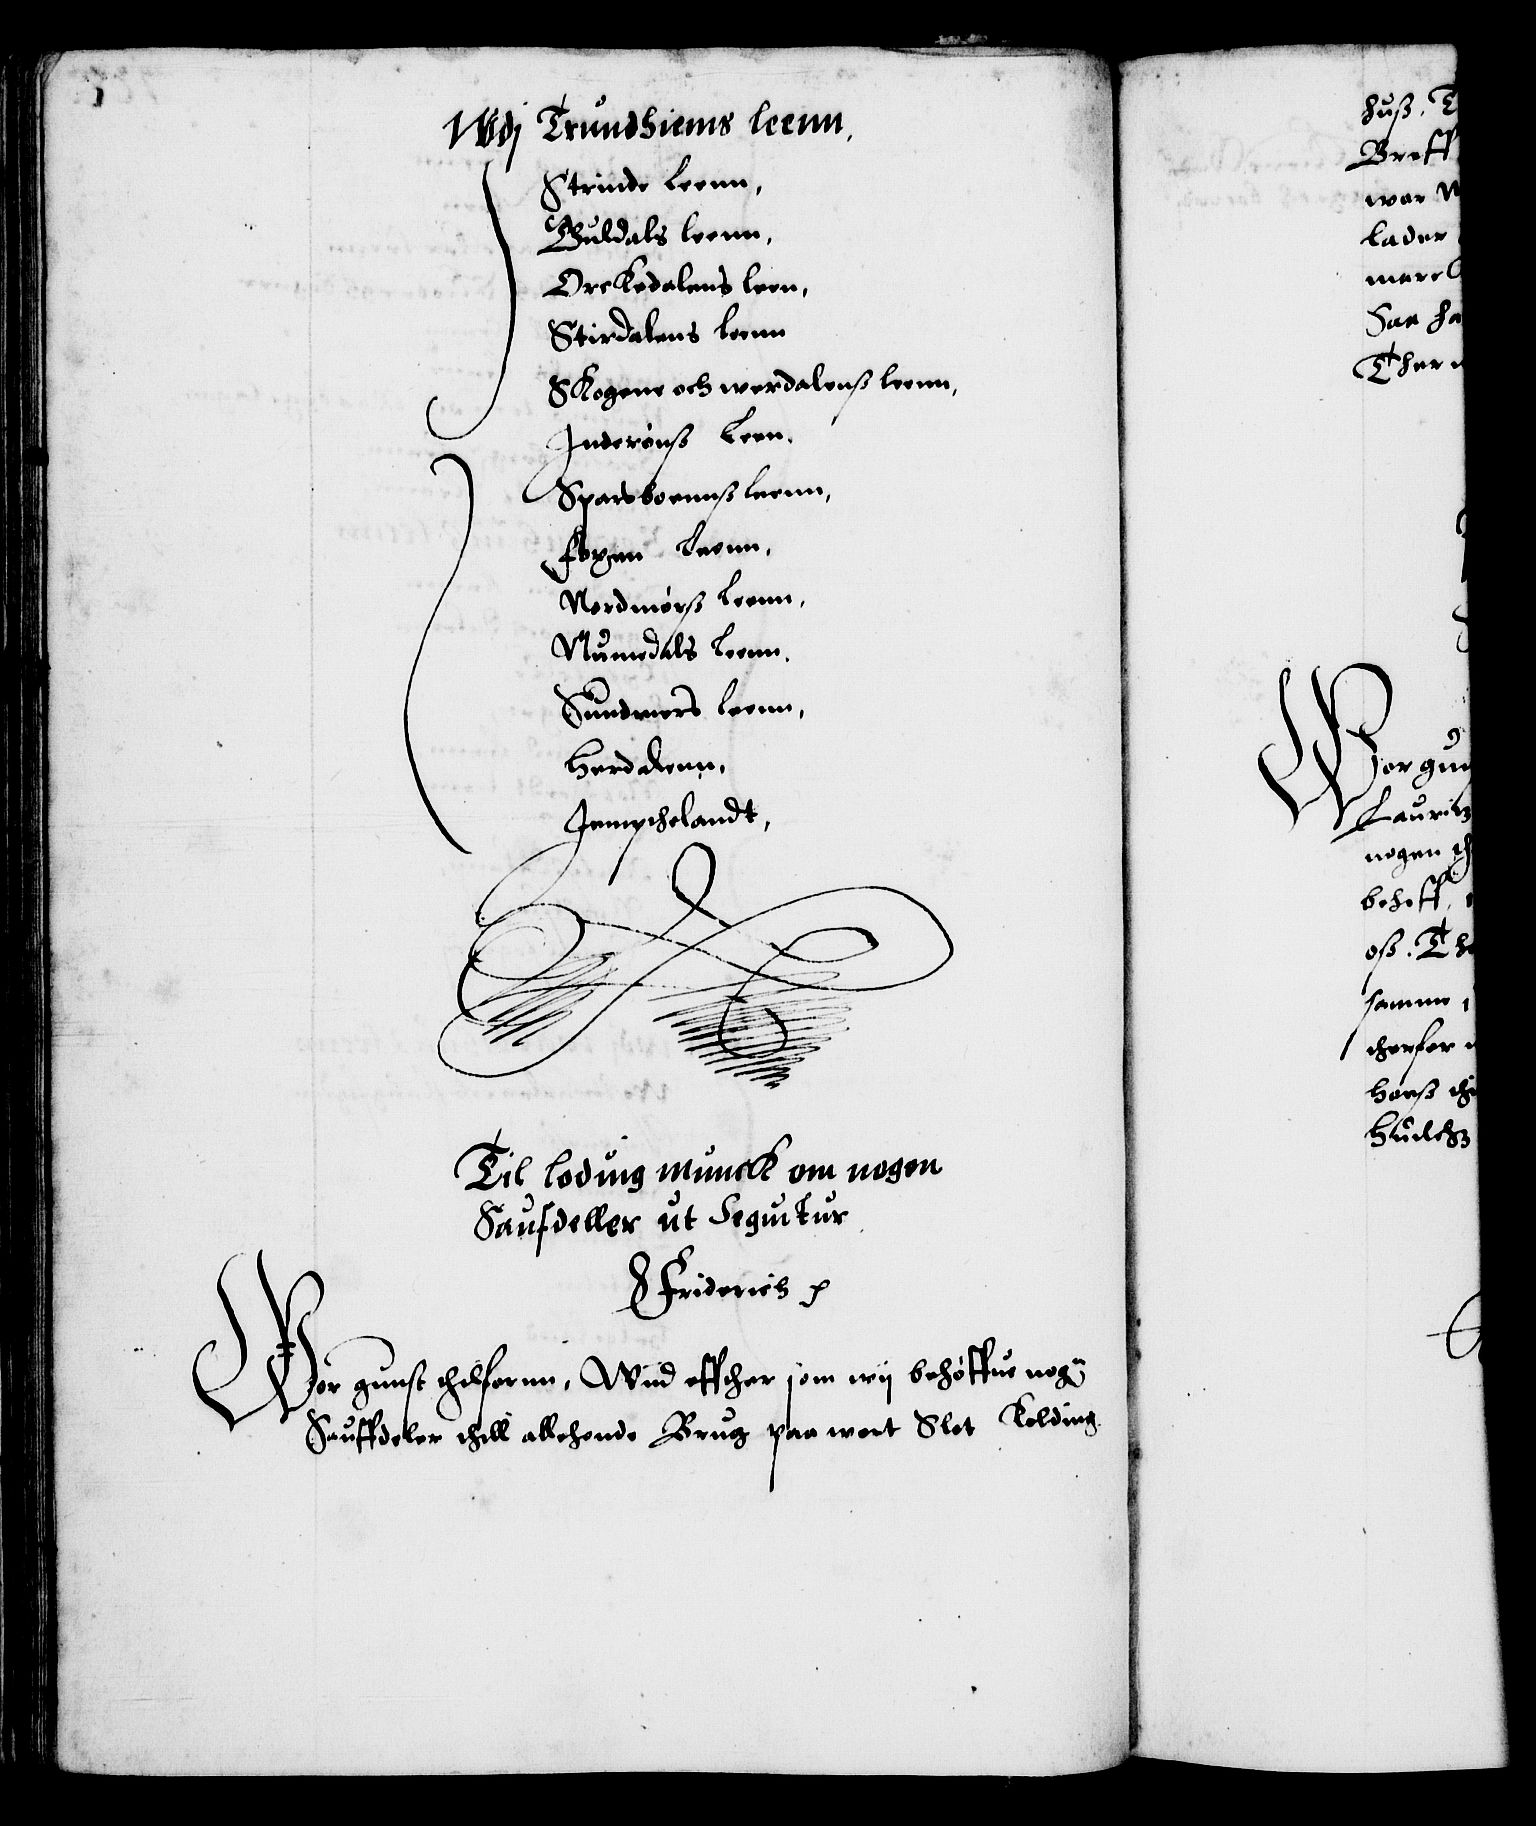 Udj Trundhiems leenn,
Strinde leenn,
Guldals leenn,
Orckedalens leen,
Stirdalens leenn
Skogene och werdalenß leenn,
Inderønß Leen.
Sparboennß leenn,
foxen leenn,
Nordmørß leenn,
Numedals leenn.
Sundmers leenn,
Herdalenn,
Jempthelandt,
Til lodvig Munck om nogen
Saufdeller ut Seguitur
Friderich
Wor gunst thilfornn, Wiid effther som wij behøffue nogn
Sauffdeler thill atthende Brug paa wort Slot Kolding
huß. T
Breff
war
lader
mare
Saa ha
Ther
Wor gun
Lauritz
nogen
behoff,
oß. The
samme
therfor
hoeß